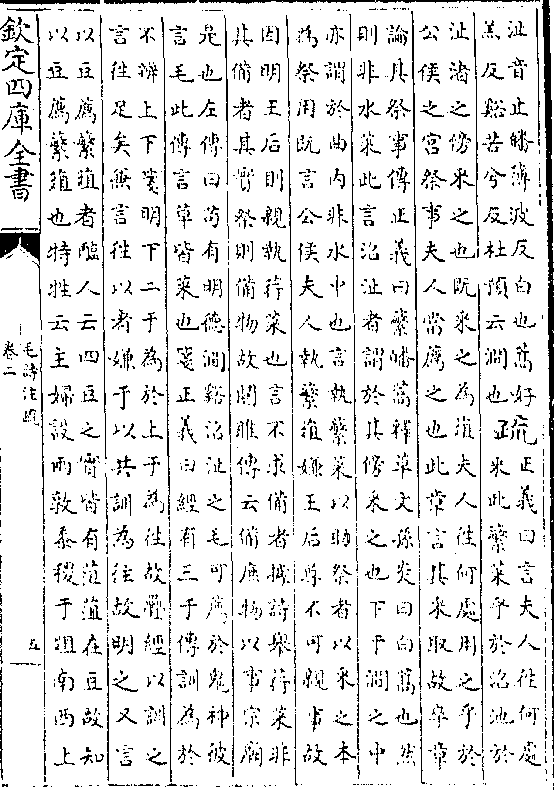 沚音止皤薄波反白也蒿好
羔反谿苦兮反杜預云澗也
疏正義曰言夫人往何處
采此蘩菜乎於沼池於
沚渚之傍采之也既采之為菹夫人往何處用之乎於
公侯之宮祭事夫人當薦之也此章言其采取故卒章
論其祭事傳正義曰蘩皤蒿釋草文孫炎曰白蒿也然
則非水菜此言沼沚者謂於其傍采之也下于澗之中
亦謂於曲內非水中也言執蘩菜以助祭者以采之本
為祭用既言公侯夫人執蘩菹嫌王后尊不可親事故
因明王后則親執荇菜也言不求備者據詩舉荇菜非
其備者其實祭則備物故關雎傳云備庶物以事宗廟
是也左傳曰苟有明德澗谿沼沚之毛可薦於鬼神彼
言毛此傳言草皆菜也箋正義曰經有三于傳訓為於
不辨上下箋明下二于為於上于為往故疊經以訓之
言往足矣兼言往以者嫌于以共訓為往故明之又言
以豆薦蘩菹者醢人云四豆之實皆有菹菹在豆故知
以豆薦蘩菹也特牲云主婦設兩敦黍稷于俎南西上
欽定四庫全書
毛詩注疏
卷二
五